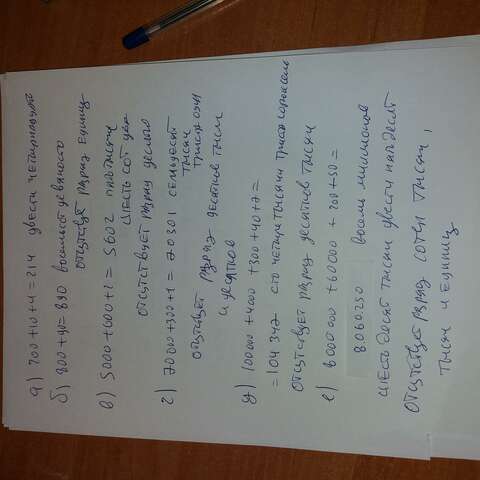 а) 200+10+4=214 двести четырнадцать
б) 800+90=890 восемьсот девяносто
отсутствует разряд единиц
в) 5000+600+2=5602 пять тысяч
шестьсот два
отсутствует разряд десятков
г) 70000+300+1=70301 семьдесят
тысяч
триста один
отсутствует разряд десятков тысяч
и десятков
д) 100000+4000+300+40+7=
=104347 сто четыре тысячи триста сорок семь
отсутствует разряд десятков тысяч
е) 8000000+60000+200+50=
8060250 восемь миллионов
шестьдесят тысяч двести пятьдесят
отсутствует разряд сотен тысяч,
тысяч и единиц